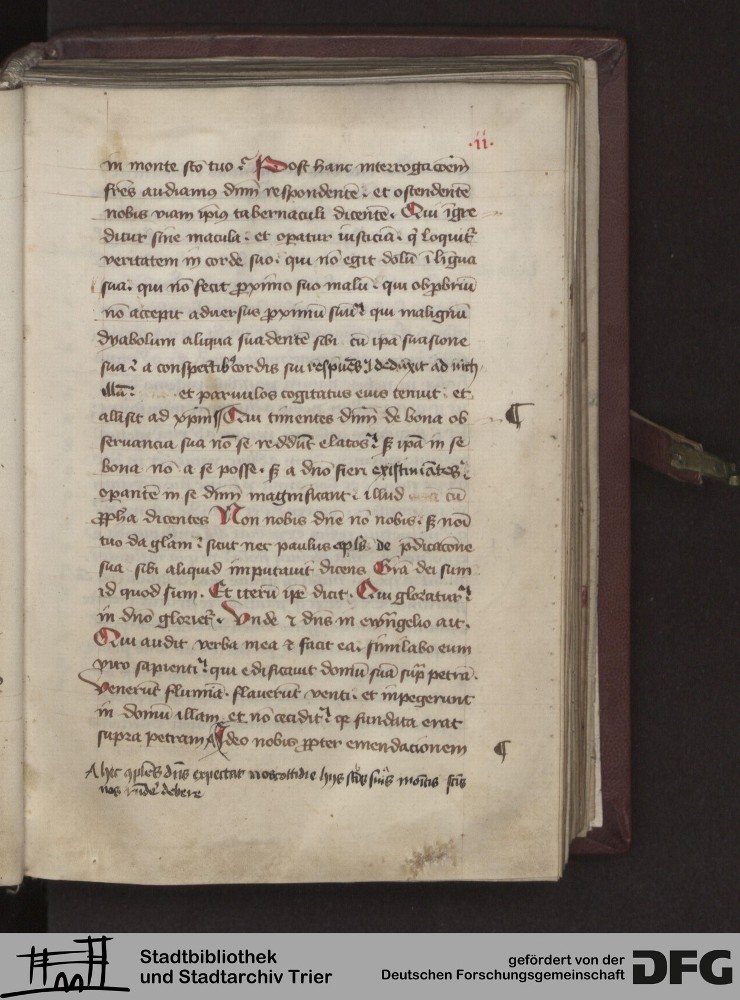 ·ii·
in monte sc̄o tuo Post hanc interrogac̄oem
fr̄es audiamus dn̄m respondentē et ostendentē
nobis viam ip̄ius tabernaculi dicentē. Qui īgre
ditur sine macula. et opatur iusticiā. q̄ loquit᷑
veritatem in corde suo. qui nō egit dolū ī ligua
sua. qui nō fecit ꝓximo suo malū. qui obꝓbriū
nō accepit aduersus ꝓximū suū qui malignū
dyabolum aliqua suadentē sibi cū ip̄a suasione
sua a conspectib᷒ cordis sui respuēs deduxit ad nich
illū et paruulos cogitatus eius tenuit et
allisit ad xp̄m Qui timentes dn̄m de bona ob
seruancia sua nō se reddūt elatos sꝫ ip̄a in se
bona nō a se posse. sꝫ a dn̄o fieri existimātes
opantē in se dn̄m magnificant. illud cū
ꝓpha dicentes Non nobis dn̄e nō nobis. sꝫ noī
tuo da gl̄am sicut nec paulus apl̄s de p̄dicacōne
sua sibi aliquid imputauit dicens Grā dei sum
id quod sum. Et iterū ip̄e dicit. Qui gloriatur
in dn̄o gloriet᷑. Vnde ⁊ dn̄s in ewāgelio ait.
Qui audit verba mea ⁊ facit ea. similabo eum
viro sapienti qui edificauit domū suā sup̄ petrā.
Venerūt flumīa. flauerūt venti. et inpegerunt
in domū illam et nō cecidit qꝫ fundata erat
supra petram Ideo nobis ꝓpter emendacionem
hec 9plēs dn̄s expectat nos cottidie hijs sc̄is suis monitis
nos debere
Stadtbibliothek
und Stadtarchiv Trier
gefördert von der
Deutschen Forschungsgemeinschaft
DFG